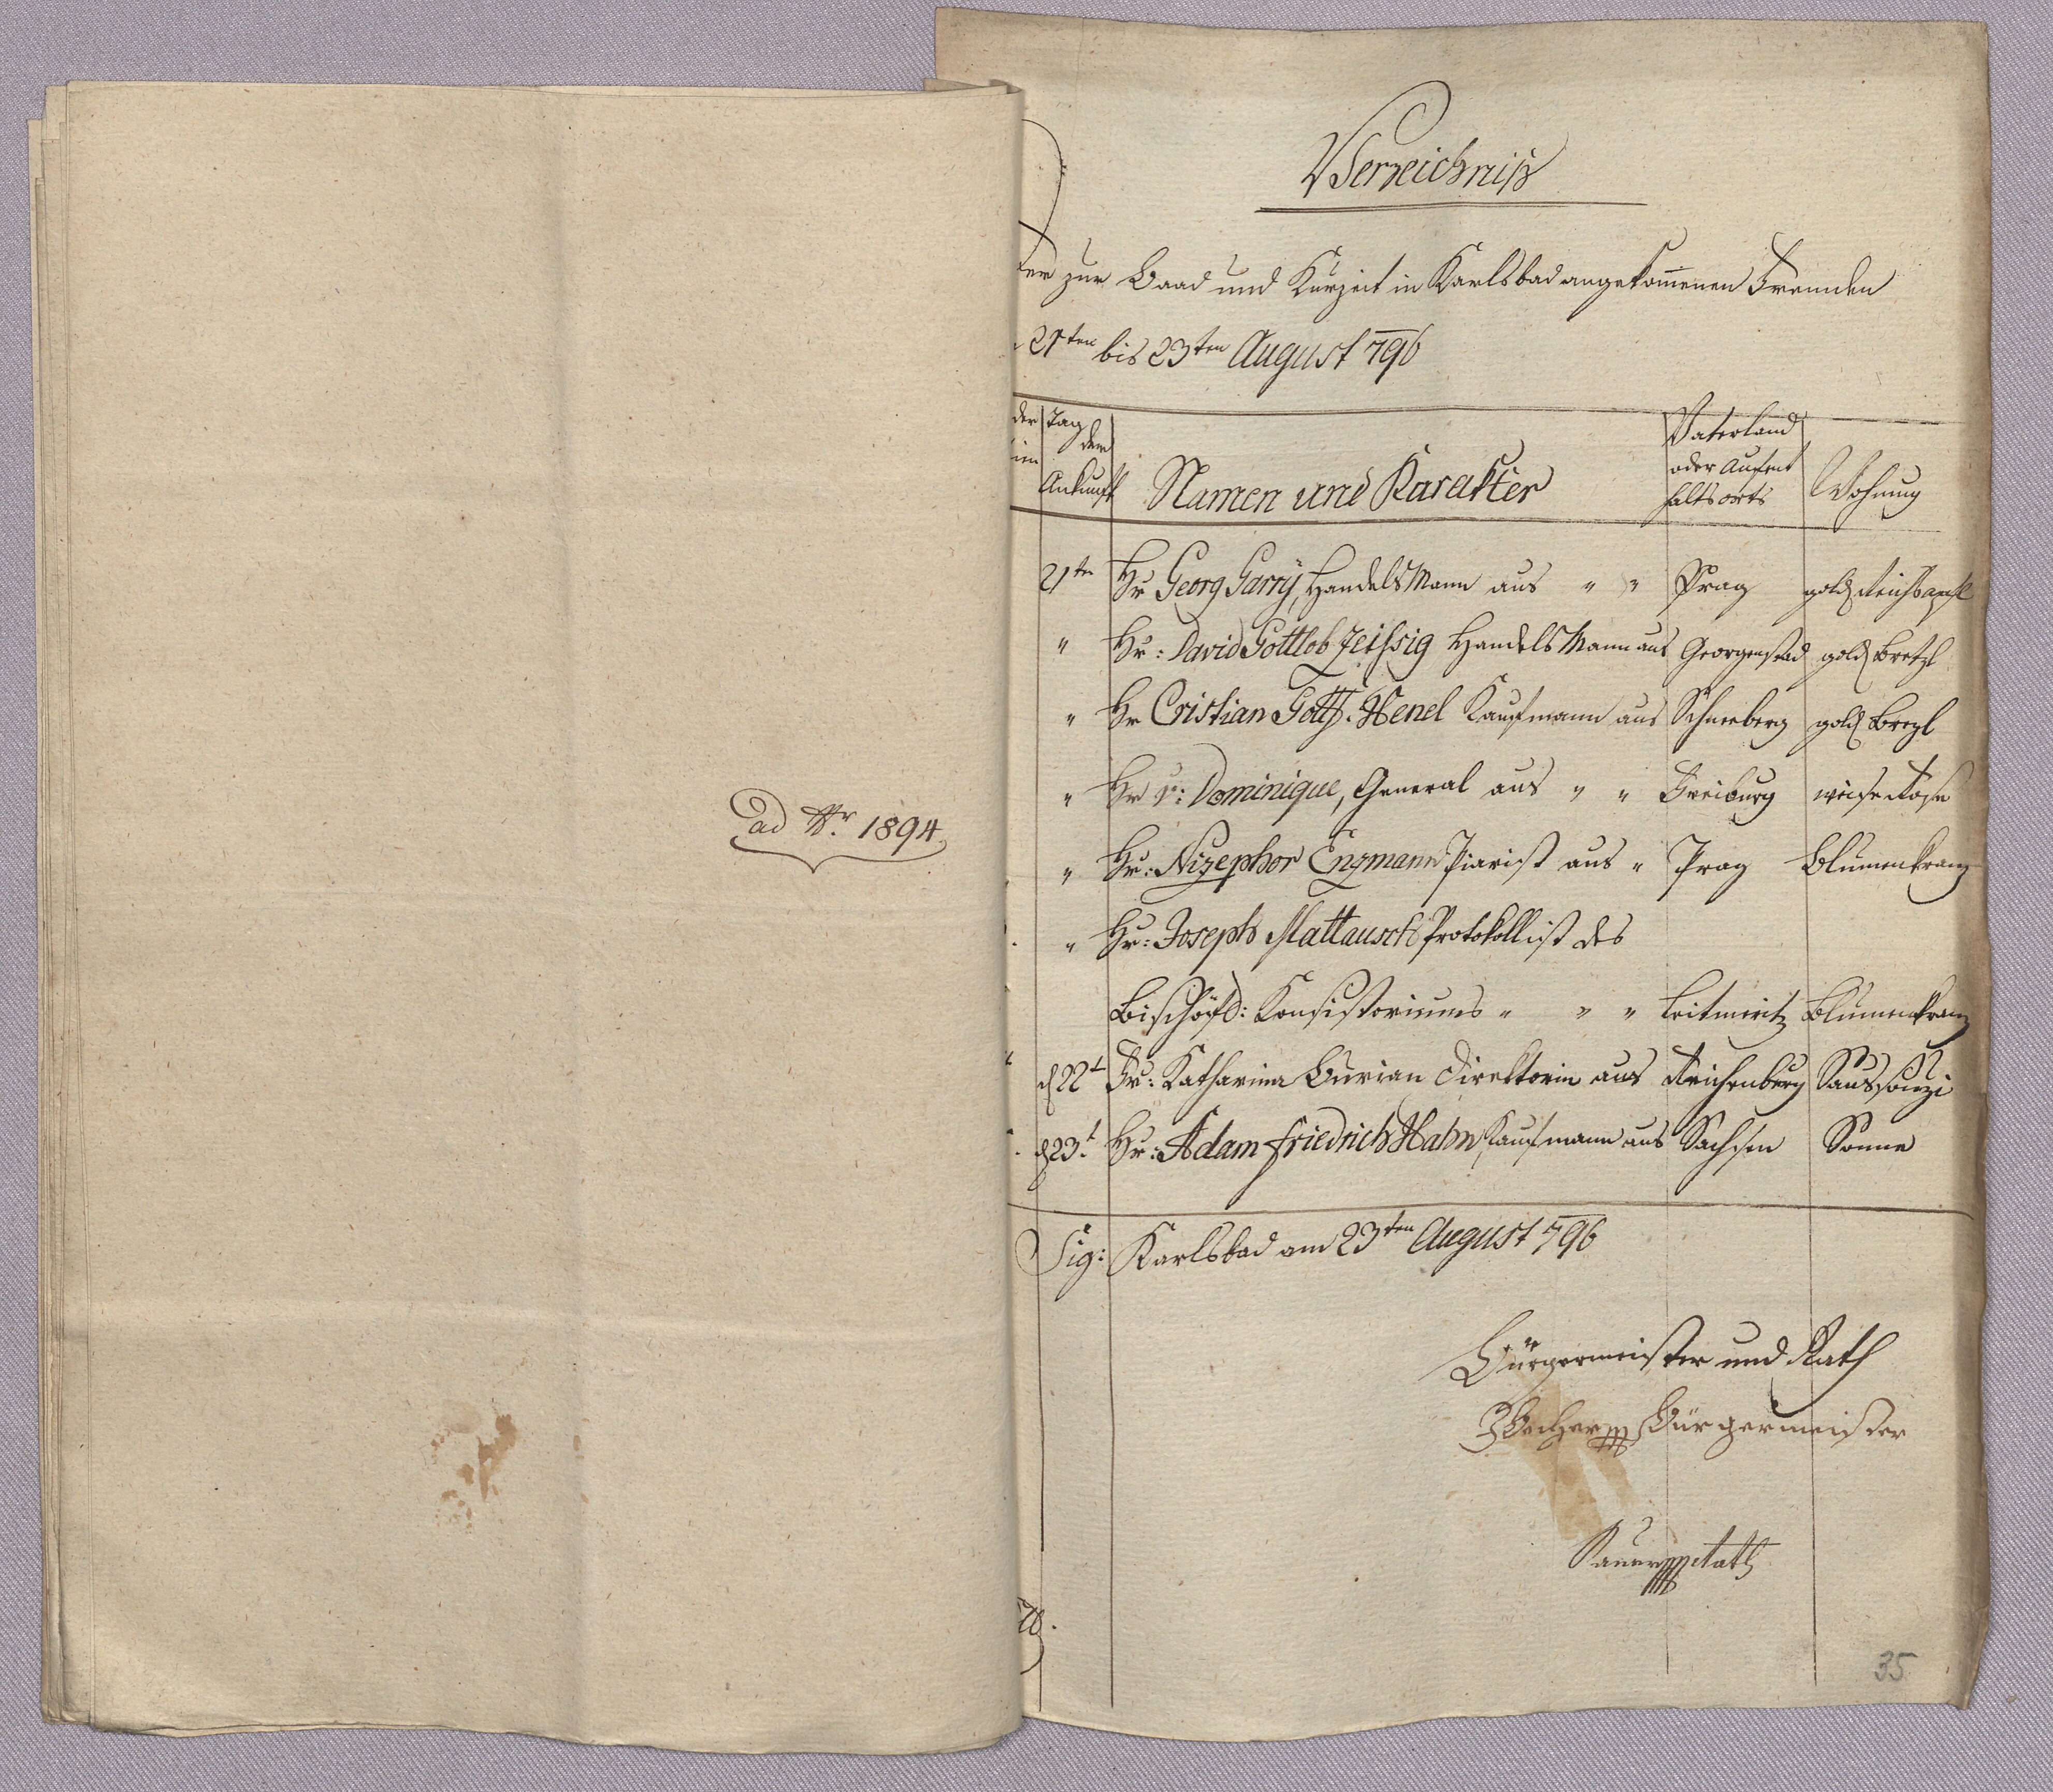 ad Nr. 1894.
Verzeichniß
der zur Baad und Kurzeit in Karlsbad angekom̄enen Fremden
21ten bis 23ten August 796
der Tag der Ankunft Namen und Karakter Vaterland oder Aufenthaltsorts Wohnung
21ten Hr Georg Garry, HandelsMann aus " " Prag gold Reichsapfl
" Hr: David Gottlob Zeißig HandelsMann aus Georgenstad gold Bretzl
" Hr Cristian Gottf. Henel Kaufmann aus Schneeberg gold Brezl
" Hr v: Dominique, General aus " " Freiburg weise Rose
" Hr: Nizephor Enzmann Piarist aus " Prag Blumenkranz
" Hr: Joseph Mattausch Protokollist des
Bischöfl: Konsistoriums " " " Leitmeritz Blumenkranz
d 22t Fr: Katharina Burian Direktorin aus Reichenburg Sanssouzi
d 23t Hr: Adam Friedrich Hahn, Kaufmann aus Sachsen Sonne
Sig: Karlsbad am 23ten August 796
Bürgermeister und Rath
Becher Bürgermeister
Rath
35